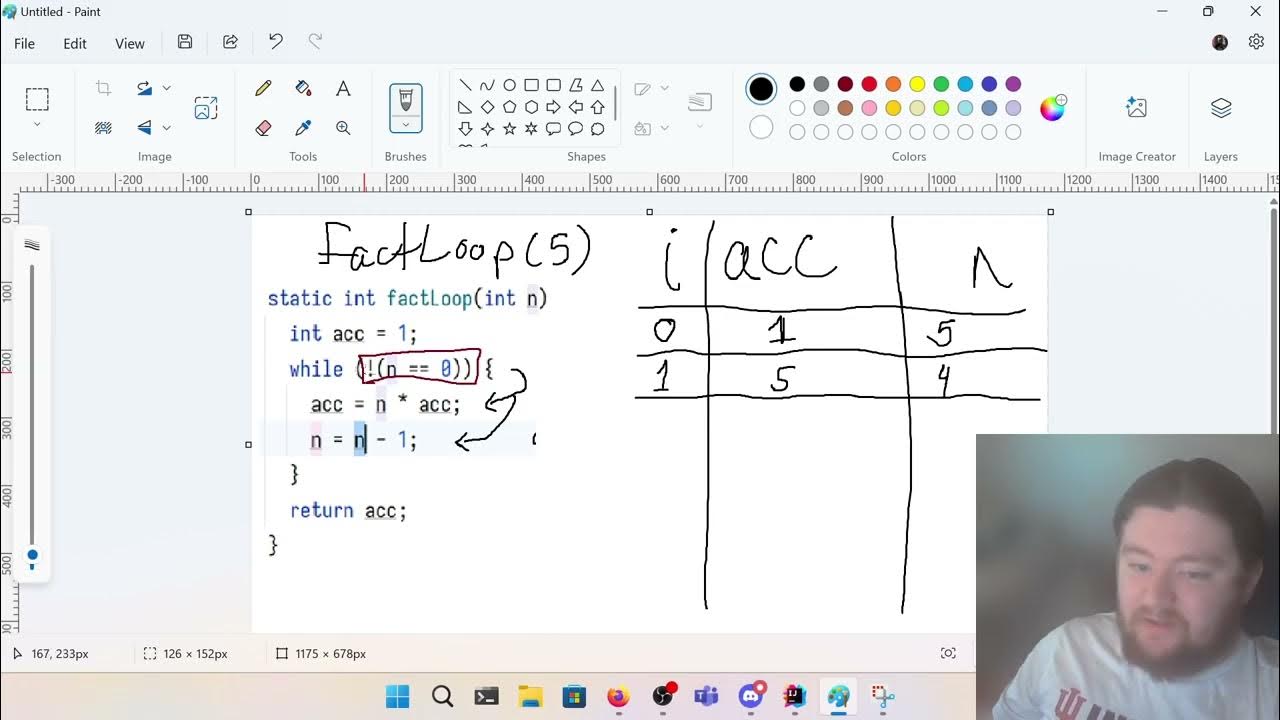 Untitled - Paint
File Edit View
Selection Image Tools Brushes Shapes Colors Image Creator Layers
-300 -200 -100 0 100 200 300 400 500 600 700 800 900 1000 1100 1200 1300 1400
0
100
200
300
400
500
FactLoop(5)
static int factLoop(int n)
int acc = 1;
while (!(n == 0)) {
acc = n * acc;
n = n - 1;
}
return acc;
}
i acc n
0 1 5
1 5 4
167, 233px 126 × 152px 1175 × 678px